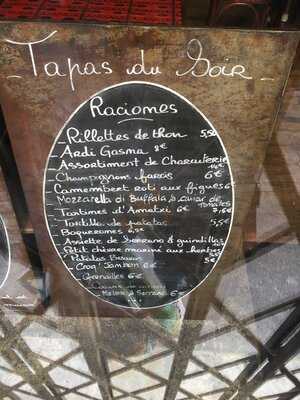 Tapas du Soir
Raciones
- Rillettes de thon 5,50
- Ardi Gasma 8€
- Assortiment de Charcuterie 14€
- Champignons farcis 6€
- Camembert roti aux figues 6
Mozzarella di Buffala & Caviar de tomates 7,6€
- Tartines d'Axuria 6€
- Tortilla de patatas 5,5€
- Boquerones 6,50
- Assiette de Serrano & guindillas
- Ptit chèvre mariné aux herbes 5€
- Patatas Bravas 5€
- Croq' Jambon 6€
- Grenailles 6€
- Melon & Serrano 6€